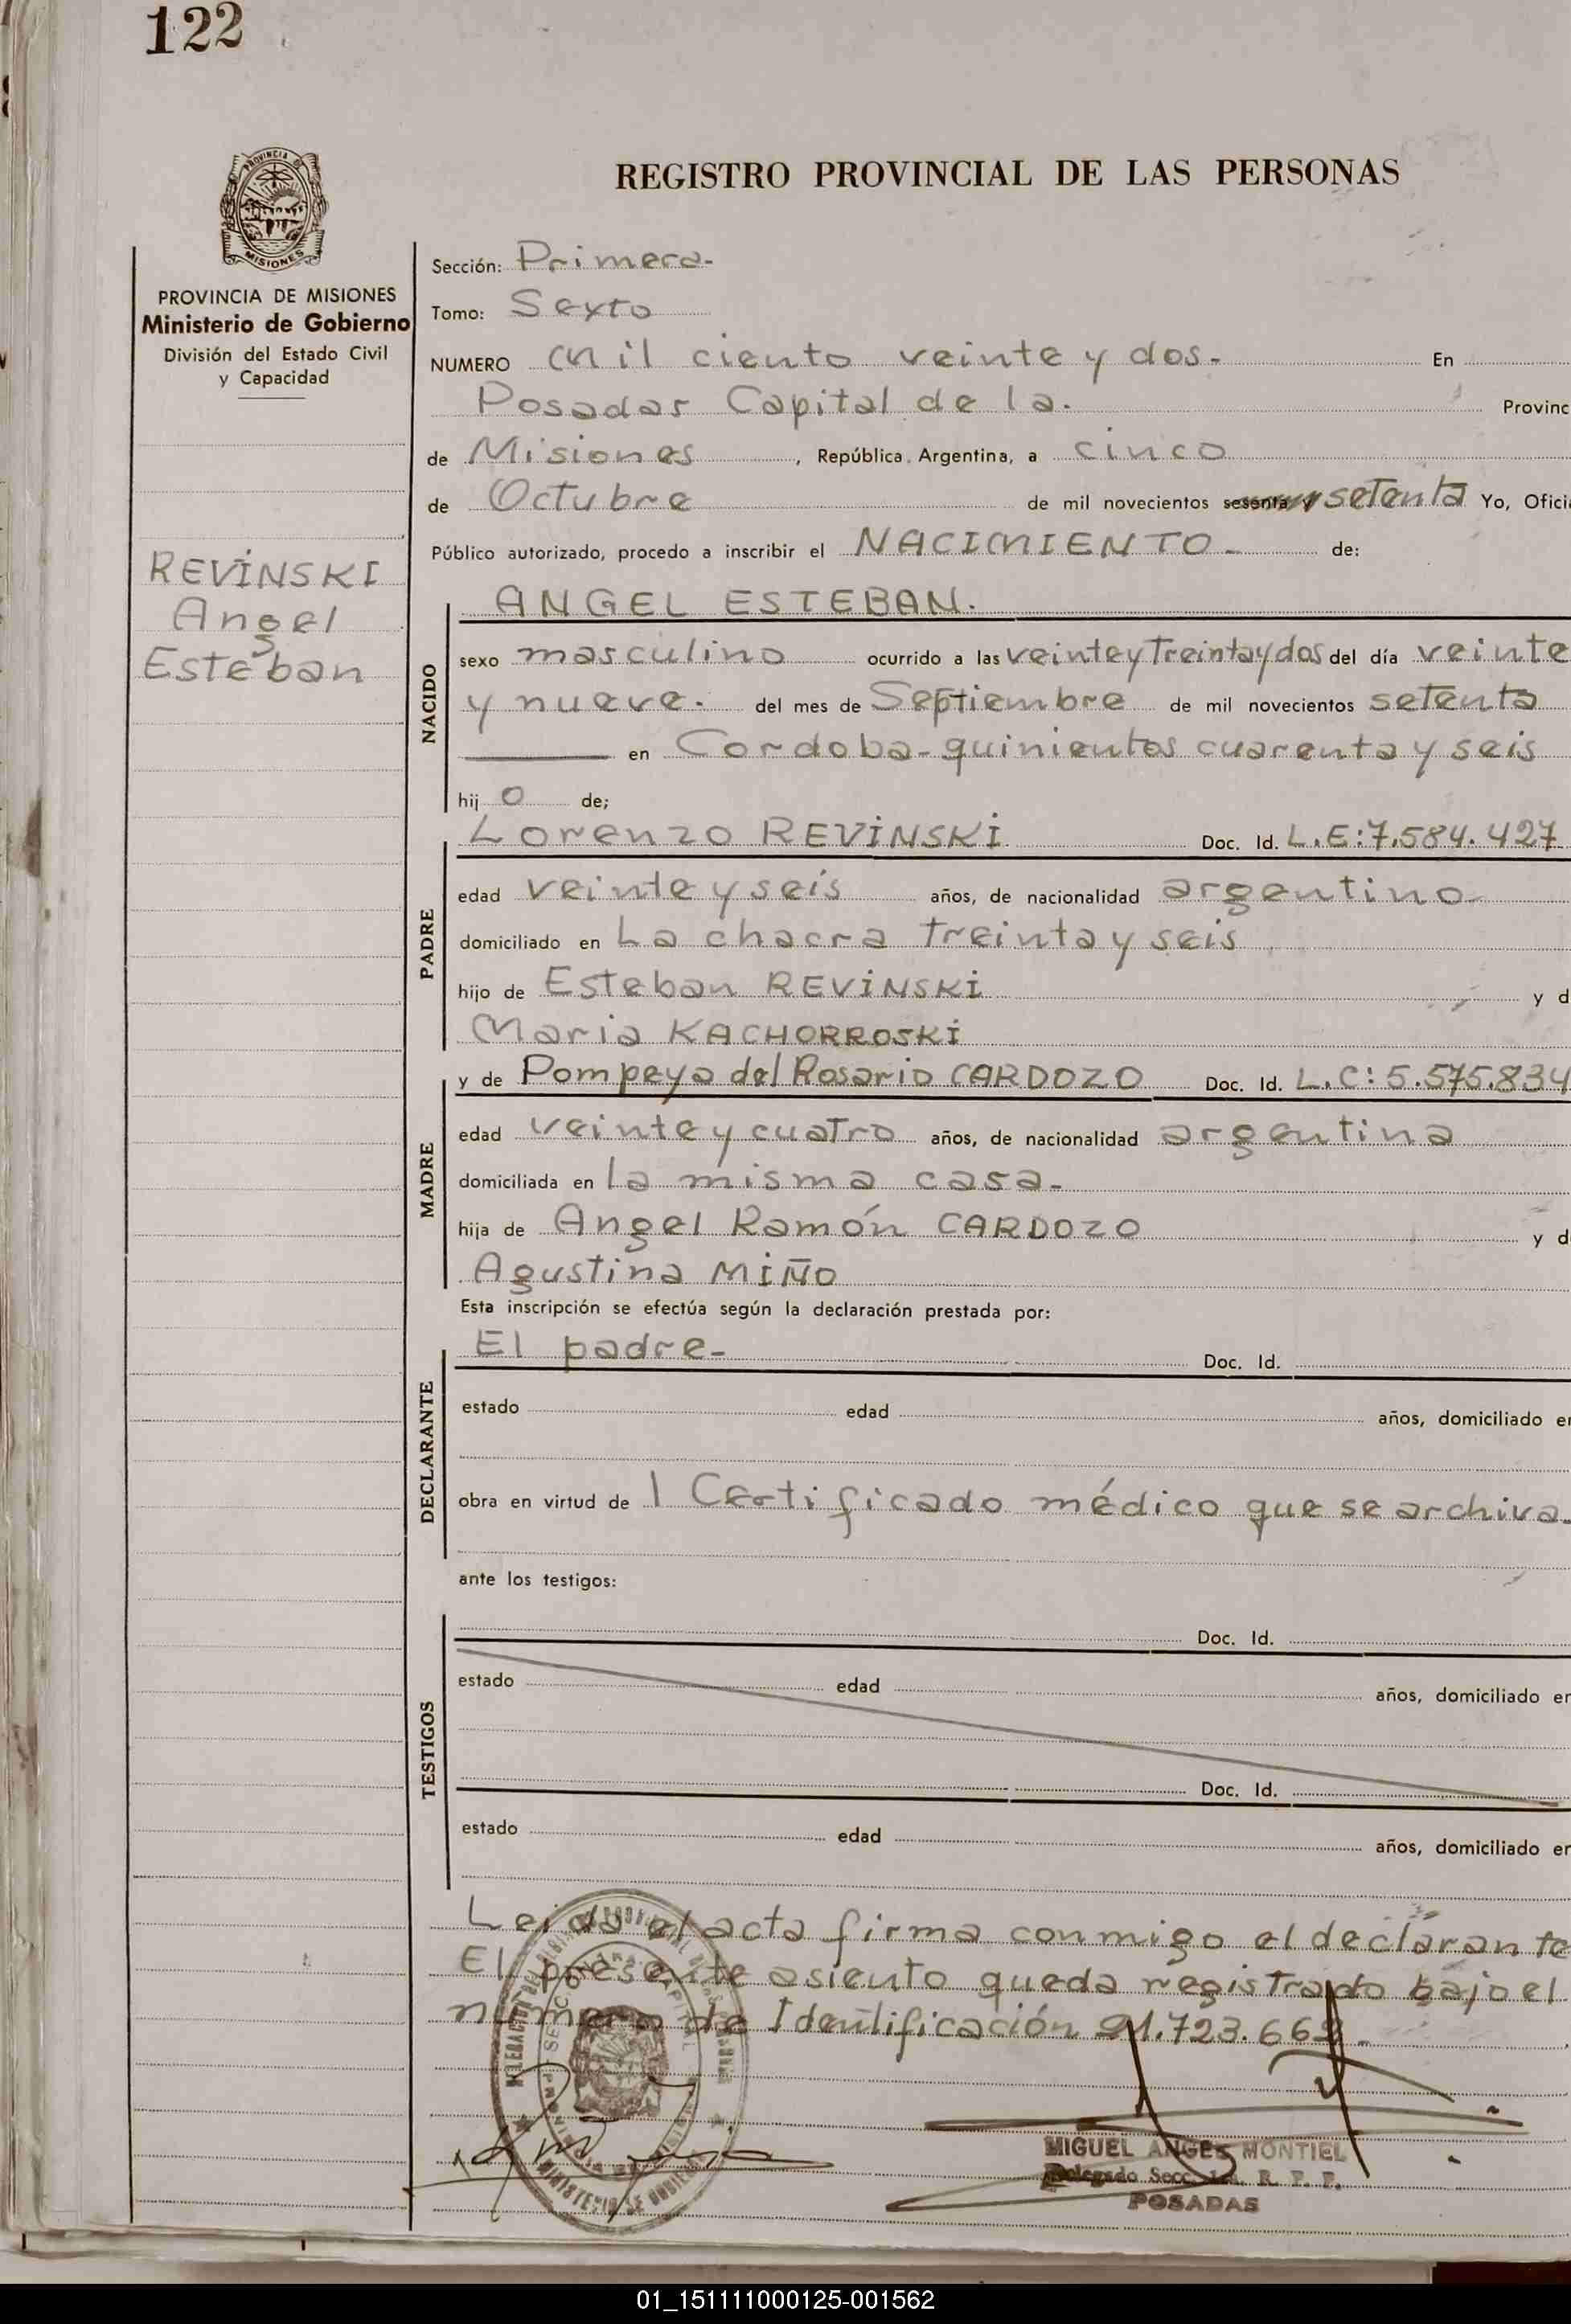 122
PROVINCIA DE
MISIONES
PROVINCIA DE MISIONES
Ministerio de Gobierno
División del Estado Civil
y Capacidad
REVINSKI
Angel
Esteban
REGISTRO PROVINCIAL DE LAS PERSONAS
Sección: Primera-
Tomo: Sexto
NUMERO Mil ciento veinte y dos- En
Posadas Capital de la. Provinc
de Misiones, República Argentina, a cinco
de Octubre de mil novecientos sesenta y setenta Yo, Ofici
Público autorizado, procedo a inscribir el NACIMIENTO- de:
NACIDO
ANGEL ESTEBAN.
sexo masculino ocurrido a las veinte y treinta y dos del día veinte
y nueve. del mes de Septiembre de mil novecientos setenta
en Cordoba-quinientos cuarenta y seis
hij o de;
PADRE
Lorenzo REVINSKI Doc. Id. L.E:7.584.427
edad veinte y seis años, de nacionalidad argentino-
domiciliado en La chacra treinta y seis
hijo de Esteban REVINSKI y d
Maria KACHORROSKI
MADRE
y de Pompeya del Rosario CARDOZO Doc. Id. L.C:5.575.834
edad veinte y cuatro años, de nacionalidad argentina
domiciliada en la misma casa-
hija de Angel Ramón CARDOZO y d
Agustina MIÑO
Esta inscripción se efectúa según la declaración prestada por:
DECLARANTE
El padre- Doc. Id.
estado edad años, domiciliado en
obra en virtud de 1 Certificado médico que se archiva-
ante los testigos:
TESTIGOS
Doc. Id.
estado edad años, domiciliado en
Doc. Id.
estado edad años, domiciliado en
Leida el acta firma conmigo el declarante
El presente asiento queda registrado bajo el
numero de Identificación 21.723.662-
MIGUEL ANGEL MONTIEL
Delegado Secc. 1a. R. P. P.
POSADAS
01_151111000125-001562